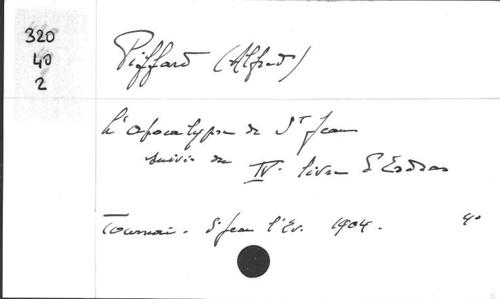 320
40
2
Piffard (Alfred)
L'Apocalypse de St Jean
suivie du IV. livre d'Esdras
Tournai. St Jean l'Ev. 1904. 4º